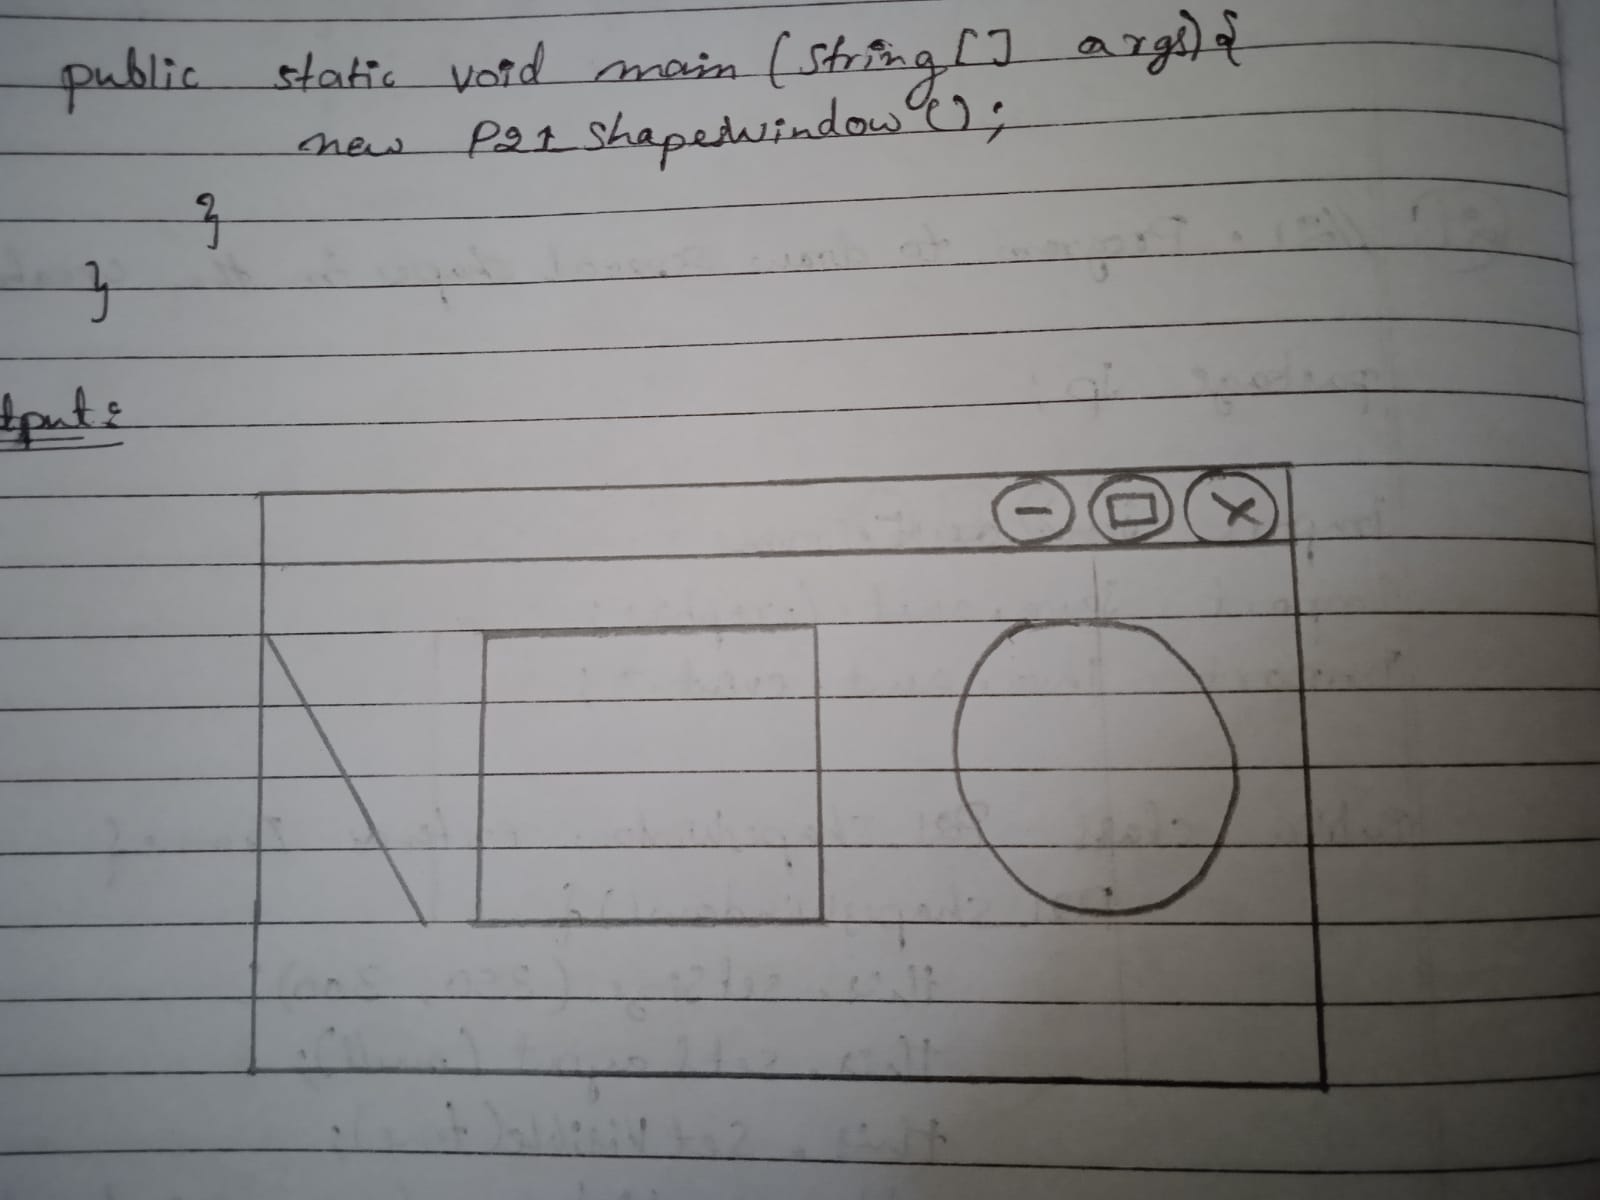 public static void main (String [] args) {
new P21 shapeswindow ();
}
}
tput: